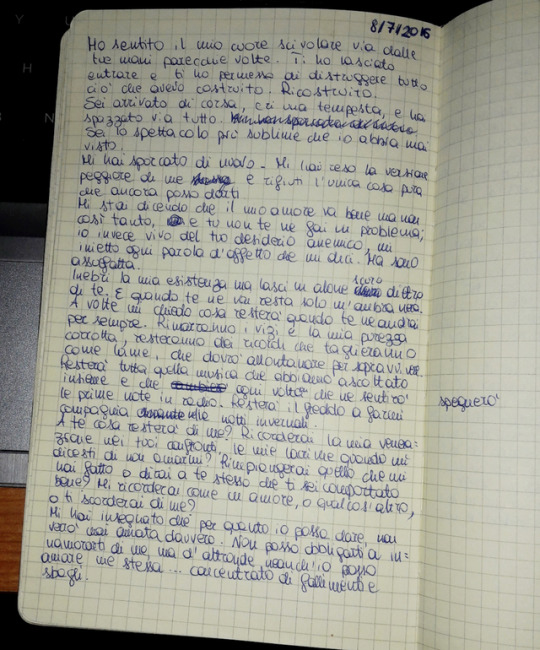 8/7/2016
Ho sentito il mio cuore scivolare via dalle
tue mani parecchie volte. Ti ho lasciato
entrare e ti ho permesso di distruggere tutto
cio' che avevo costruito. Ricostruito.
Sei arrivato di corsa, eri una tempesta, e hai
spazzato via tutto.
Sei lo spettacolo più sublime che io abbia mai
visto.
Mi hai sporcato di nuovo. Mi hai reso la versione
peggiore di me e rifiuti l'unica cosa pura
che ancora posso darti
Mi stai dicendo che il mio amore va bene ma non
così tanto, e tu non te ne fai un problema;
io invece vivo del tuo desiderio anemico, mi
inietto ogni parola d'affetto che mi dici. Ma sono
assuefatta.
Inebri la mia esistenza ma lasci un alone scuro dietro
di te. E quando te ne vai resta solo un'ombra nera.
A volte mi chiedo cosa resterà quando te ne andrai
per sempre. Rimarranno i vizi e la mia purezza
corrotta, resteranno dei ricordi che taglieranno
come lame, che dovrò allontanare per sopravvivere.
Resterà tutta quella musica che abbiamo ascoltato
insieme e che ogni volta che ne sentirò
le prime note in radio. Resterà il freddo a farmi
spegnerò
compagnia nelle notti invernali.
A te cosa resterà di me? Ricorderai la mia venera=
zione nei tuoi confronti, le mie lacrime quando mi
dicesti di non amarmi? Rimpiangerai quello che mi
hai fatto o dirai a te stesso che ti sei comportato
bene? Mi ricorderai come un amore, o qualcos'altro,
o ti scorderai di me?
Mi hai insegnato che per quanto io possa dare, non
verrò mai amata davvero. Non posso obbligarti a in=
namorarti di me ma d'altronde neanch'io posso
amare me stessa... concentrato di fallimenti e
sbagli.